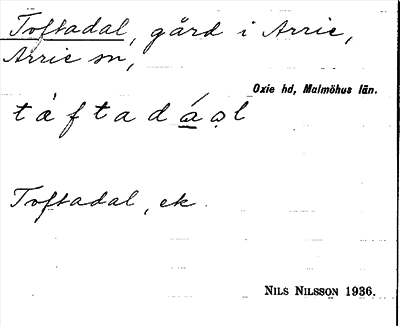 Toftadal, gård i Arrie,
Arrie sn,
Oxie hd, Malmöhus län.
tåftadáạl
Toftadal, ek.
NILS NILSSON 1936.